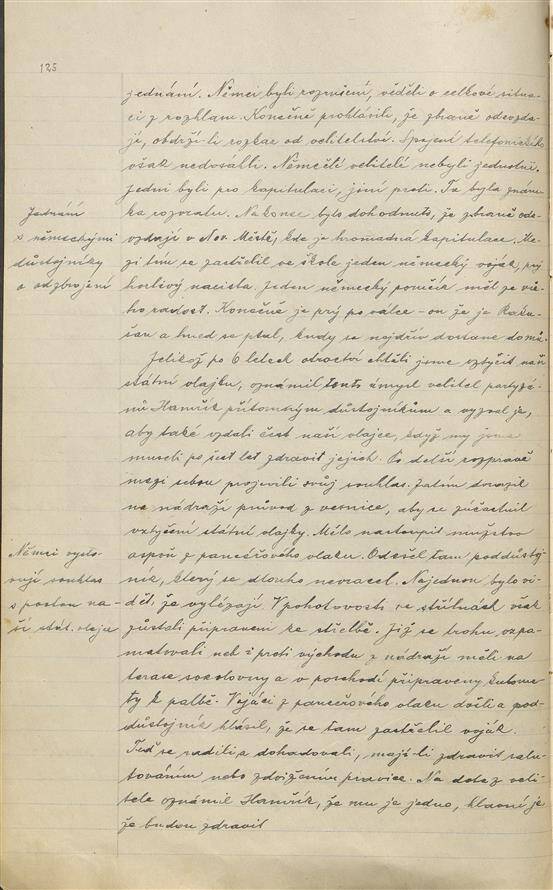 125
jednání. Němci byli rozrušení, věděli o celkové situa-
ci z rozhlasu. Konečně prohlásili, že zbraně odevzda-
jí, obdrží-li rozkaz od velitelství. Spojení telefonického
však nedosáhli. Němečtí velitelé nebyli jednotni.
Jedni byli pro kapitulaci, jiní proti. Tu byla znám-
ka rozvratu. Nakonec bylo dohodnuto, že zbraně ode-
vzdají v Nov. Městě, kde je hromadná kapitulace. Me-
zi tím se zastřelil ve škole jeden německý voják, prý
horlivý nacista. Jeden německý poručík měl ze vše-
ho radost. Konečně je prý po válce - on že je Raku-
šan a hned se ptal, kudy se nejdřív dostane domů.
Jednání
s německými
důstojníky
o odzbrojení
Jelikož po 6 letech otroctví chtěli jsme vztyčit naši
státní vlajku, oznámil tento úmysl velitel partyzá-
nů Hamřík přítomným důstojníkům a vyzval je,
aby také vzdali čest naší vlajce, když my jsme
museli po šest let zdravit jejich. Po delší rozpravě
mezi sebou projevili svůj souhlas. Zatím dorazil
na nádraží průvod z vesnice, aby se zúčastnil
vztyčení státní vlajky. Mělo nastoupit mužstvo
aspoň z pancéřového vlaku. Odešel tam poddůstoj-
ník, který se dlouho nevracel. Najednou bylo vi-
dět, že vylézají. V pohotovosti ve střílnách však
zůstali připraveni ke střelbě. Již se trochu ozpa-
matovali neb i proti východu z nádraží měli na
terase sokolovny a v poschodí připraveny kulome-
ty k palbě. Vojáci z pancéřového vlaku došli a pod-
důstojník hlásil, že se tam zastřelil voják.
Teď se radili a dohadovali, mají-li zdravit salu-
továním nebo zdvižením pravice. Na dotaz veli-
tele oznámil Hamřík, že mu je jedno, hlavní je
že budou zdravit
Němci vyslo-
vují souhlas
s poctou na-
ší stát. vlajce